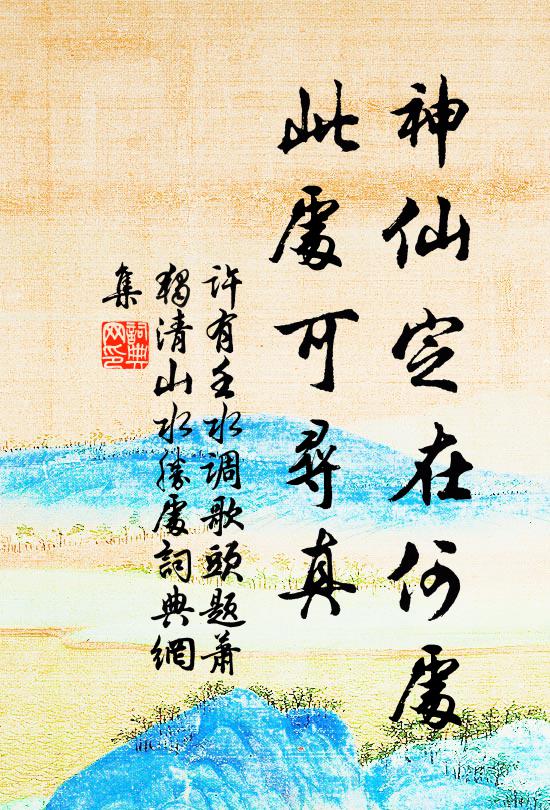 神仙定在何處
此處可尋真
許有壬水調歌頭題蕭
獨清山水勝處詞典網
集
詞典
网印